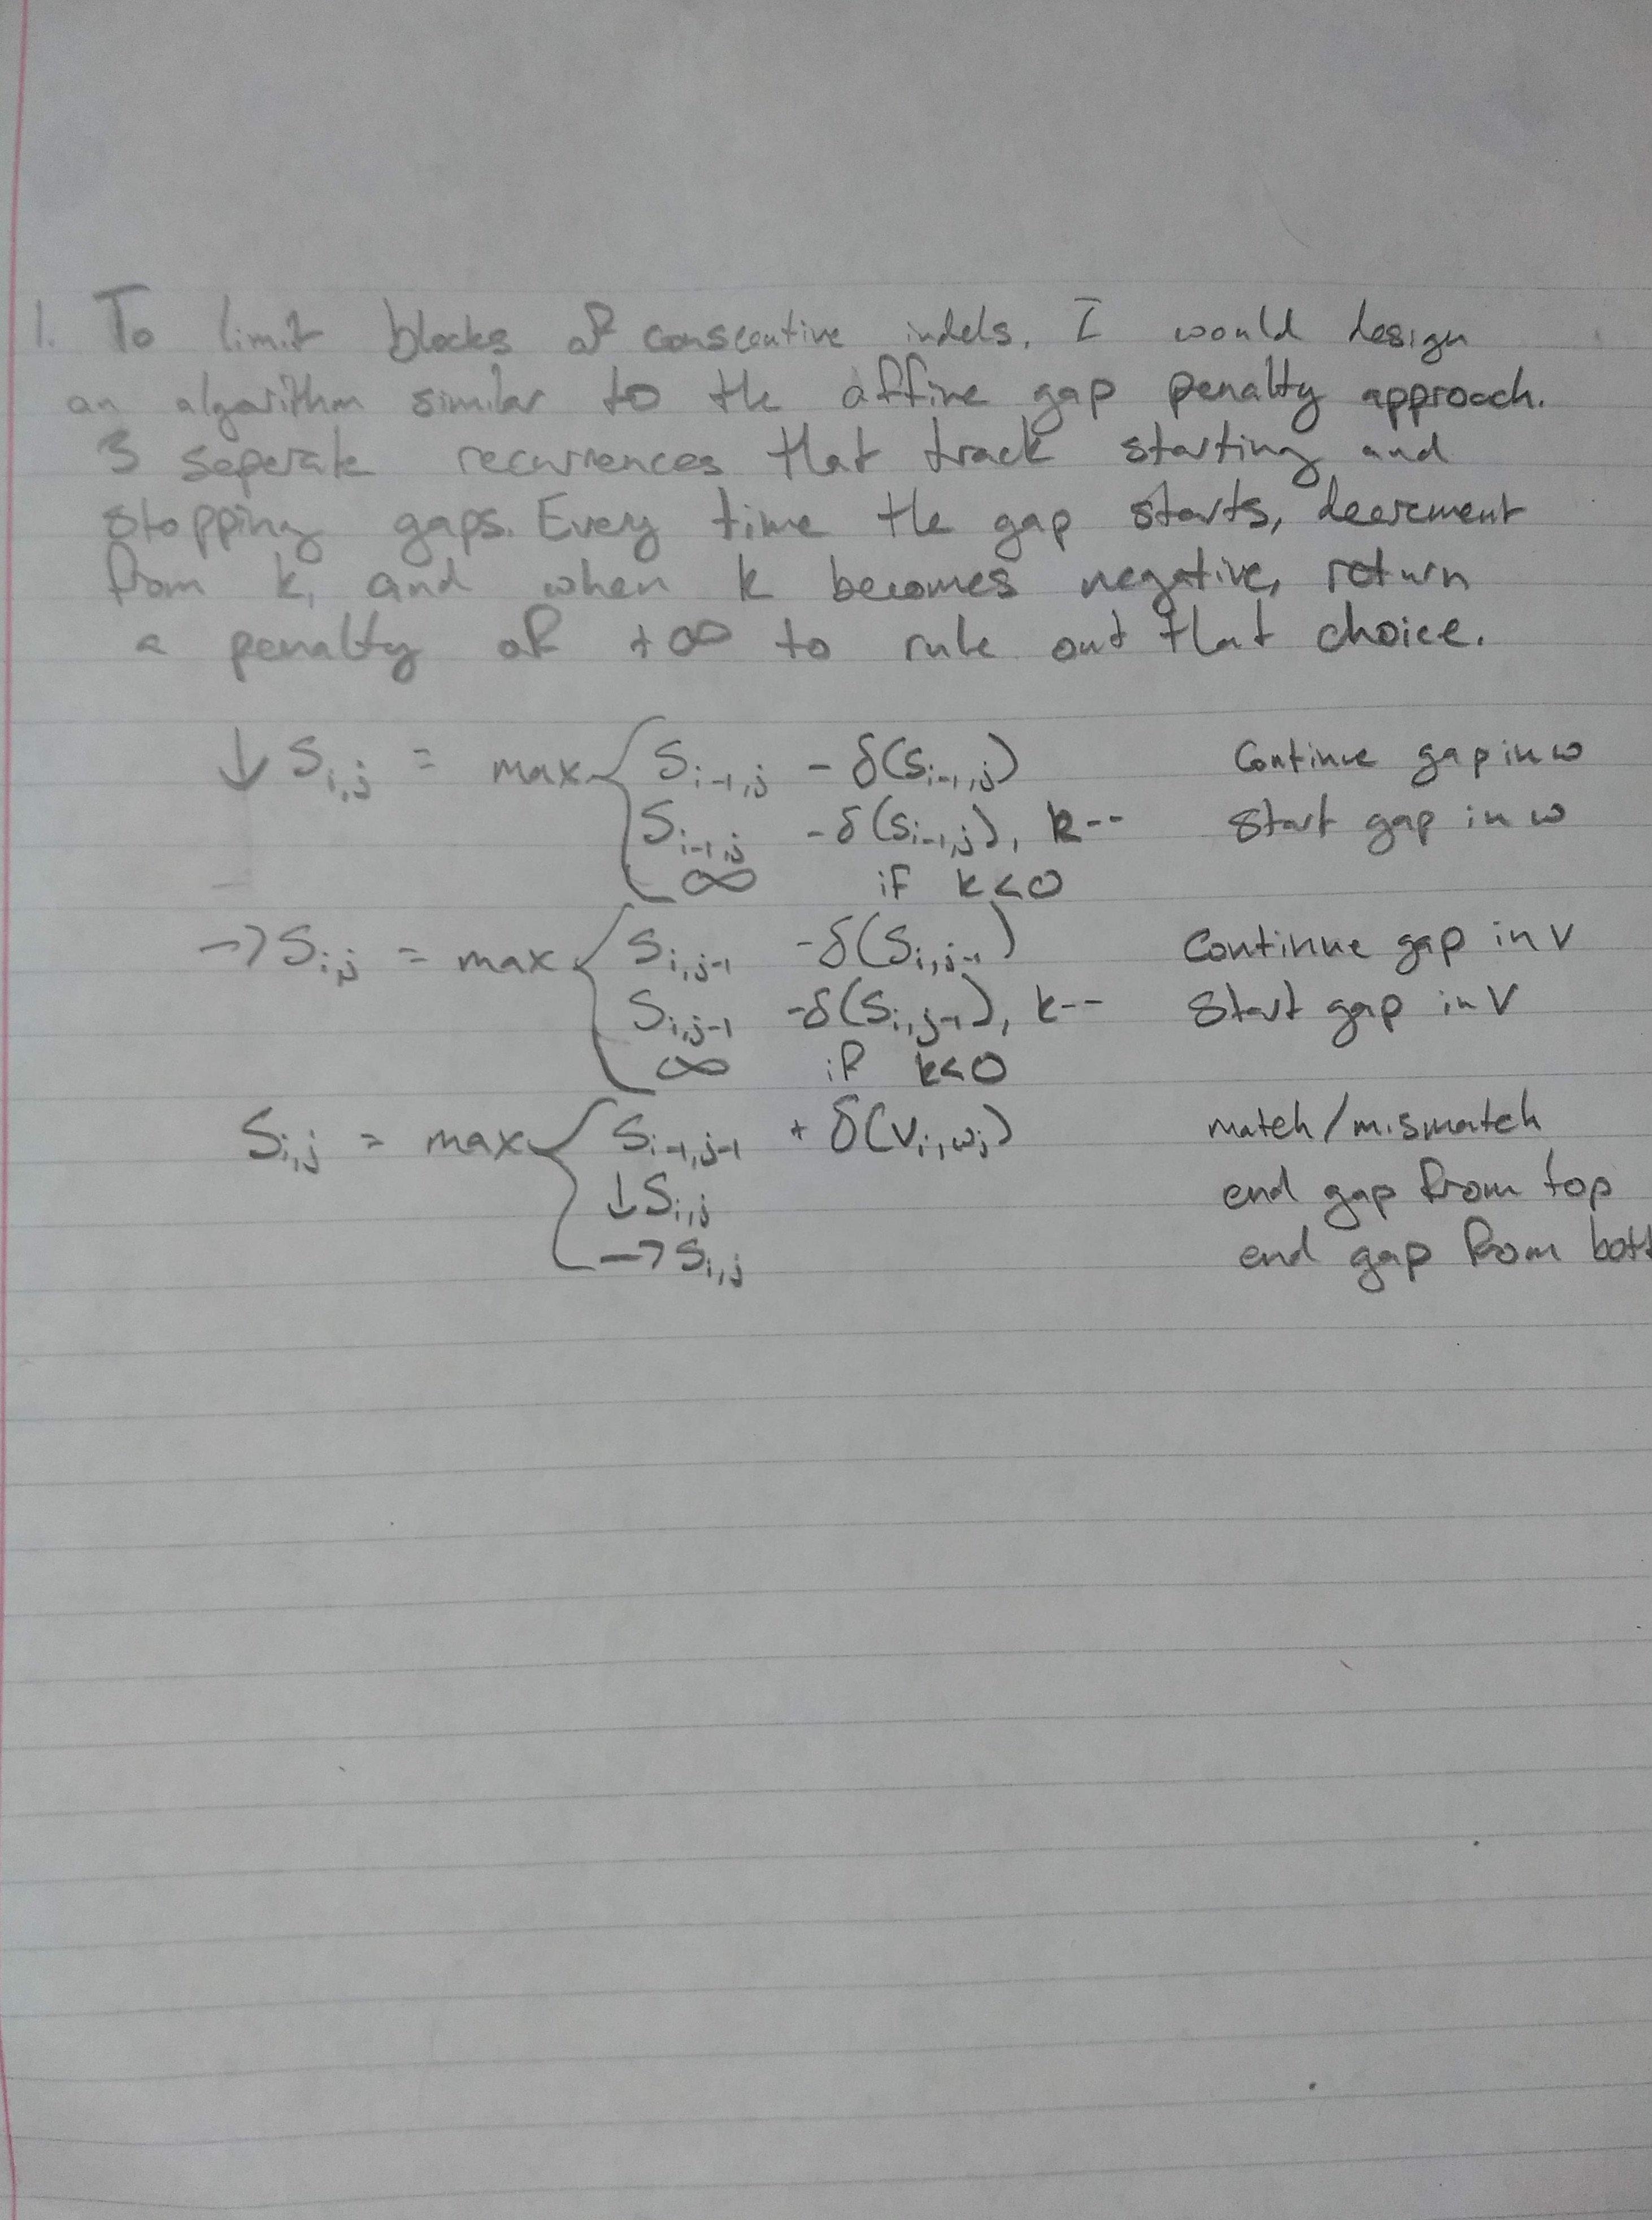 1. To limit blocks of consecutive indels, I would design
an algorithm similar to the affine gap penalty approach.
3 seperate recurrences that track starting and
stopping gaps. Every time the gap starts, decrement
from k, and when k becomes negative, return
a penalty of +∞ to rule out that choice.
↓S_{i,j} = max { S_{i-1,j} - δ(S_{i-1,j}) Continue gap in w
S_{i-1,j} - δ(S_{i-1,j}), k-- Start gap in w
∞ if k<0
→S_{i,j} = max { S_{i,j-1} - δ(S_{i,j-1}) Continue gap in v
S_{i,j-1} - δ(S_{i,j-1}), k-- Start gap in v
∞ if k<0
S_{i,j} = max { S_{i-1,j-1} + δ(v_i, w_j) match/mismatch
↓S_{i,j} end gap from top
→S_{i,j} end gap from bott